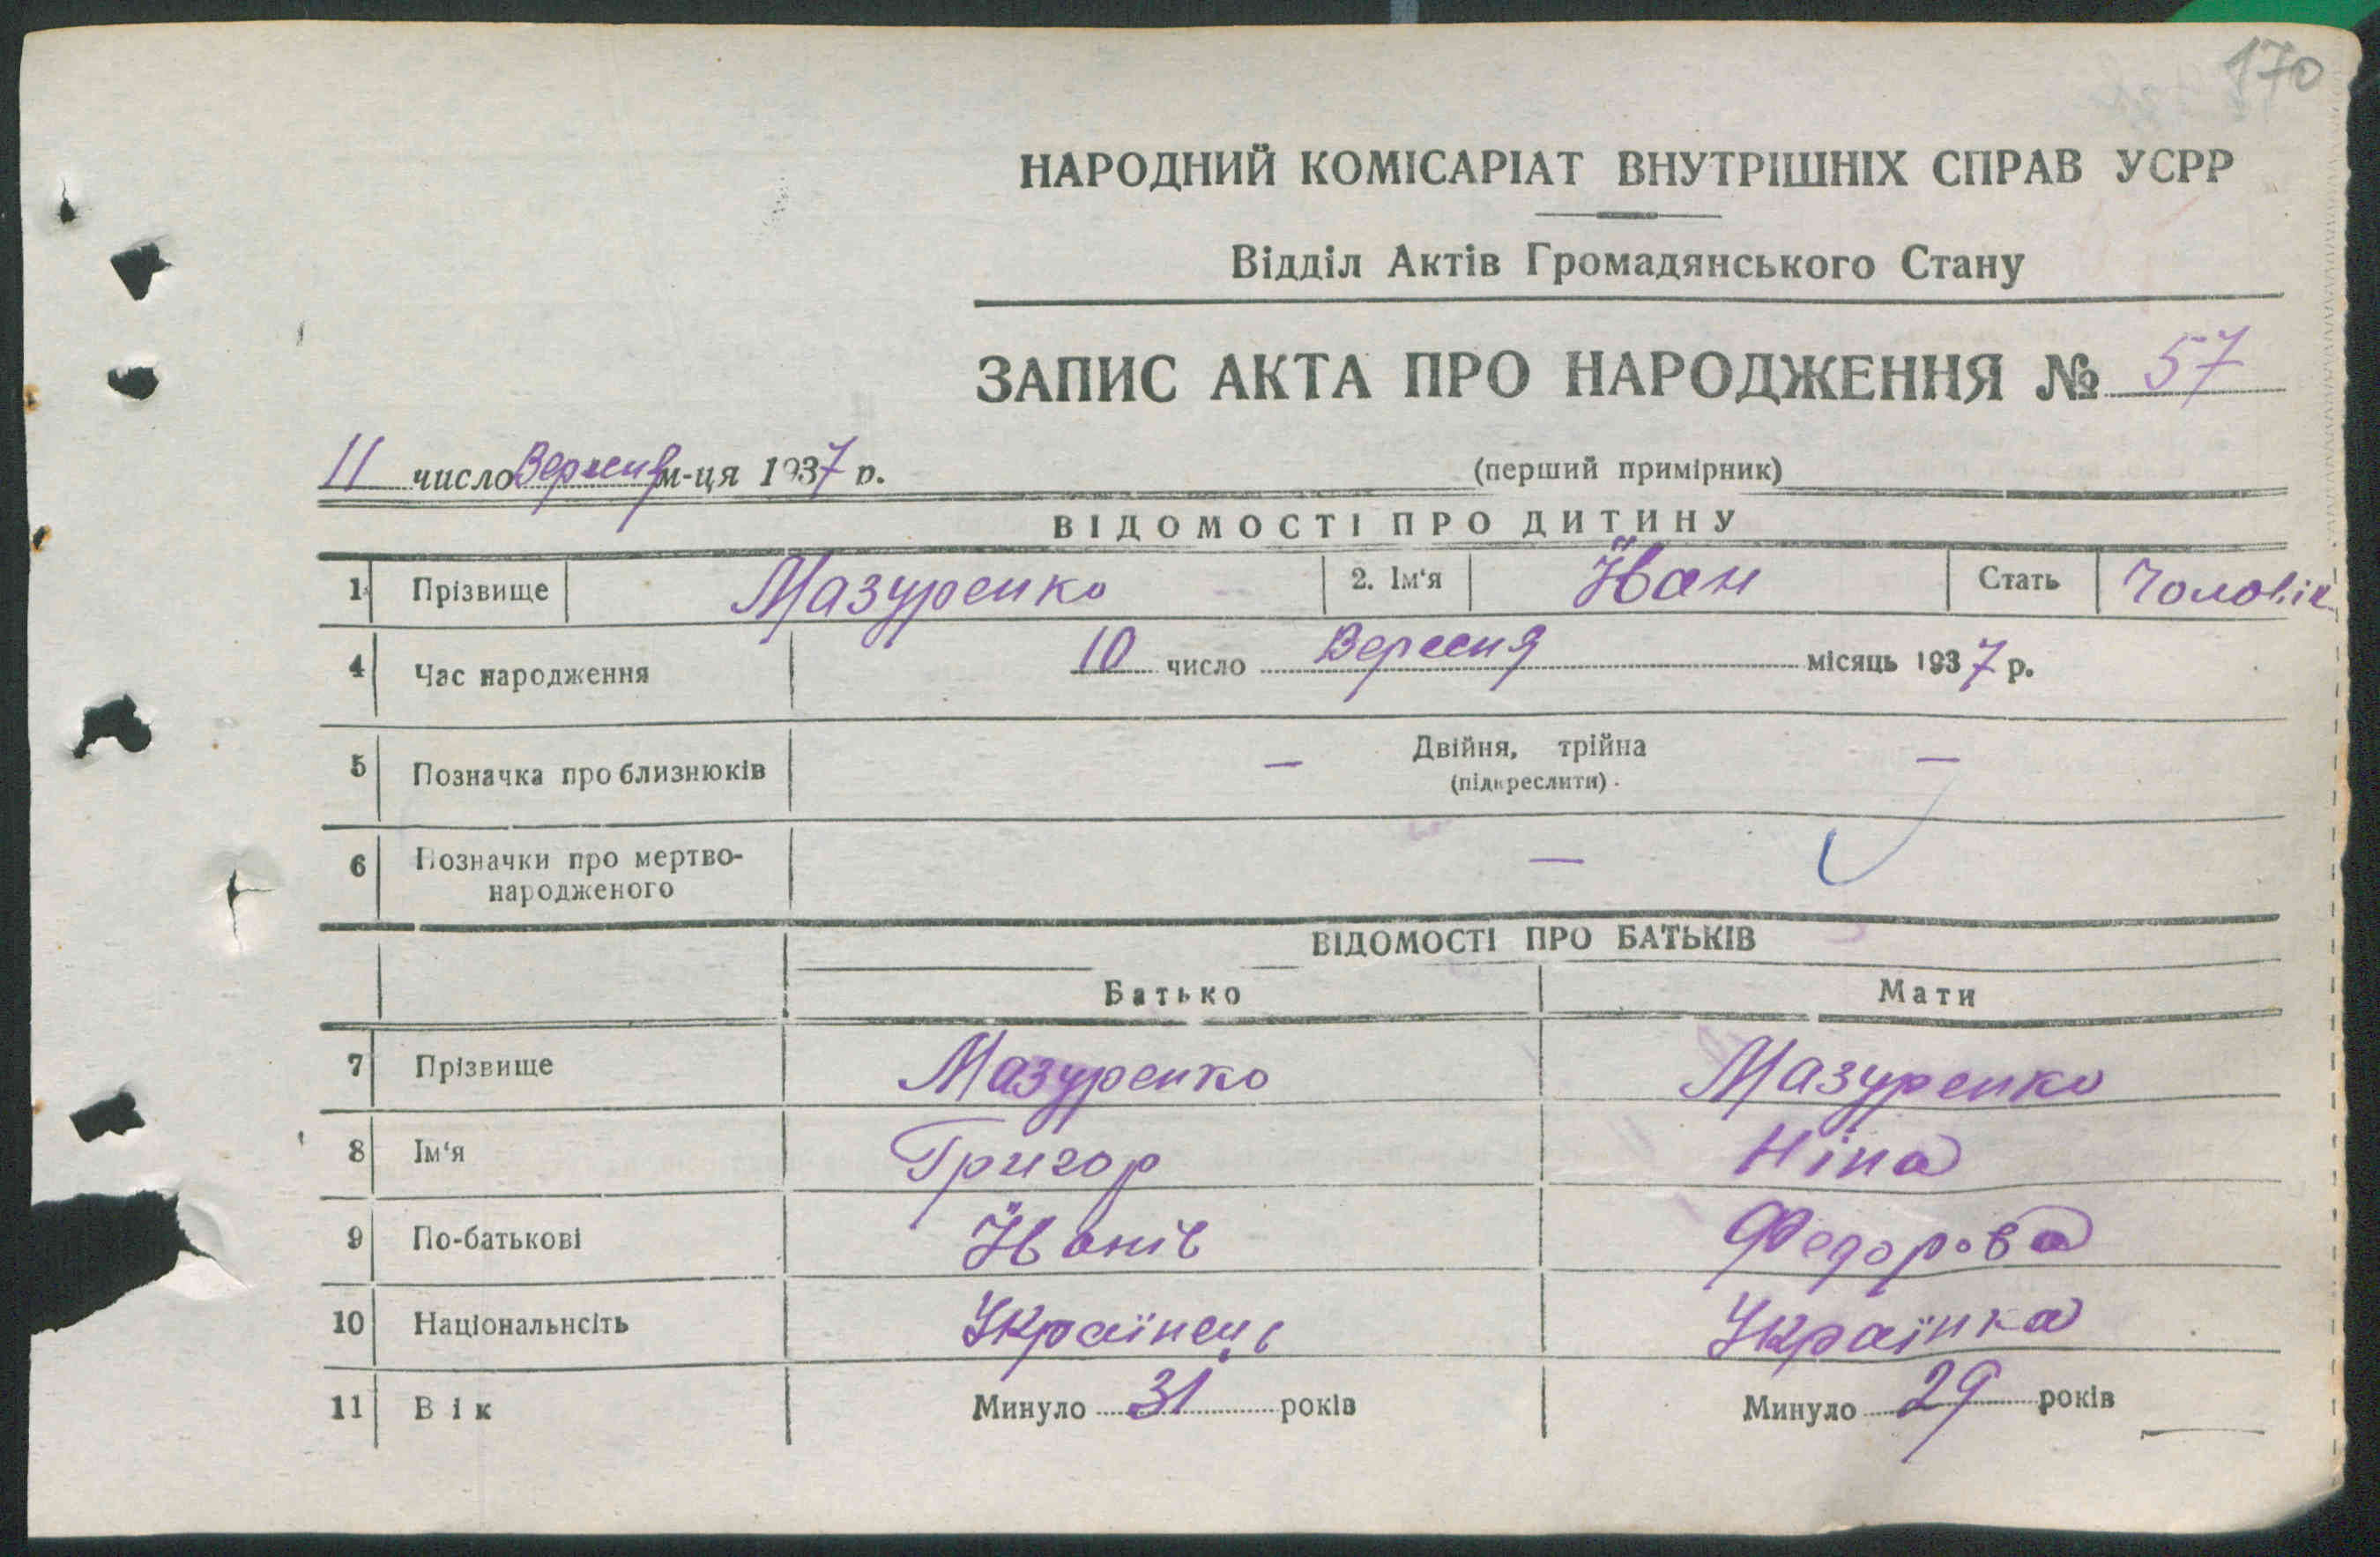 170
НАРОДНИЙ КОМІСАРІАТ ВНУТРІШНІХ СПРАВ УСРР
Відділ Актів Громадянського Стану
ЗАПИС АКТА ПРО НАРОДЖЕННЯ № 57
11 число Вересня м-ця 1937 р. (перший примірник)
ВІДОМОСТІ ПРО ДИТИНУ
1 Прізвище Мазуренко 2. Ім‘я Іван Стать Чоловік
4 Час народження 10 число Вересня місяць 1937 р.
5 Позначка про близнюків — Двійня, трійна —
(підкреслити)
6 Позначки про мертво-
народженого —
ВІДОМОСТІ ПРО БАТЬКІВ
Батько Мати
7 Прізвище Мазуренко Мазуренко
8 Ім‘я Григор Ніна
9 По-батькові Іванів Федорова
10 Національнсіть Українець Українка
11 Вік Минуло 31 років Минуло 29 років